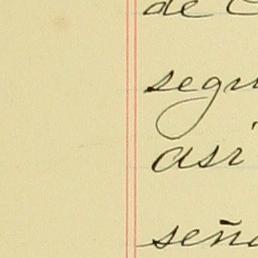 de C
segu
así
seña